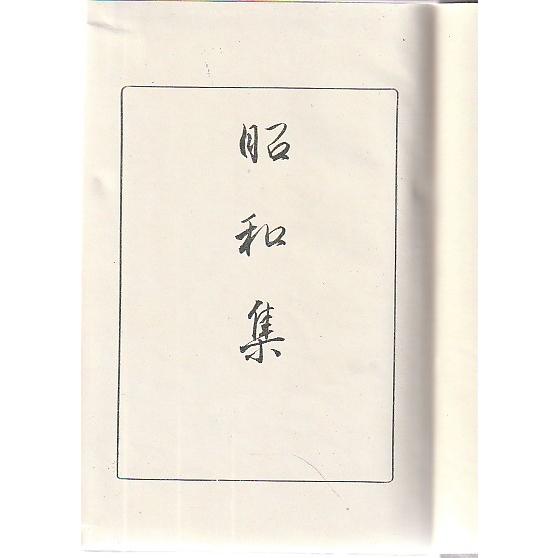 昭和集